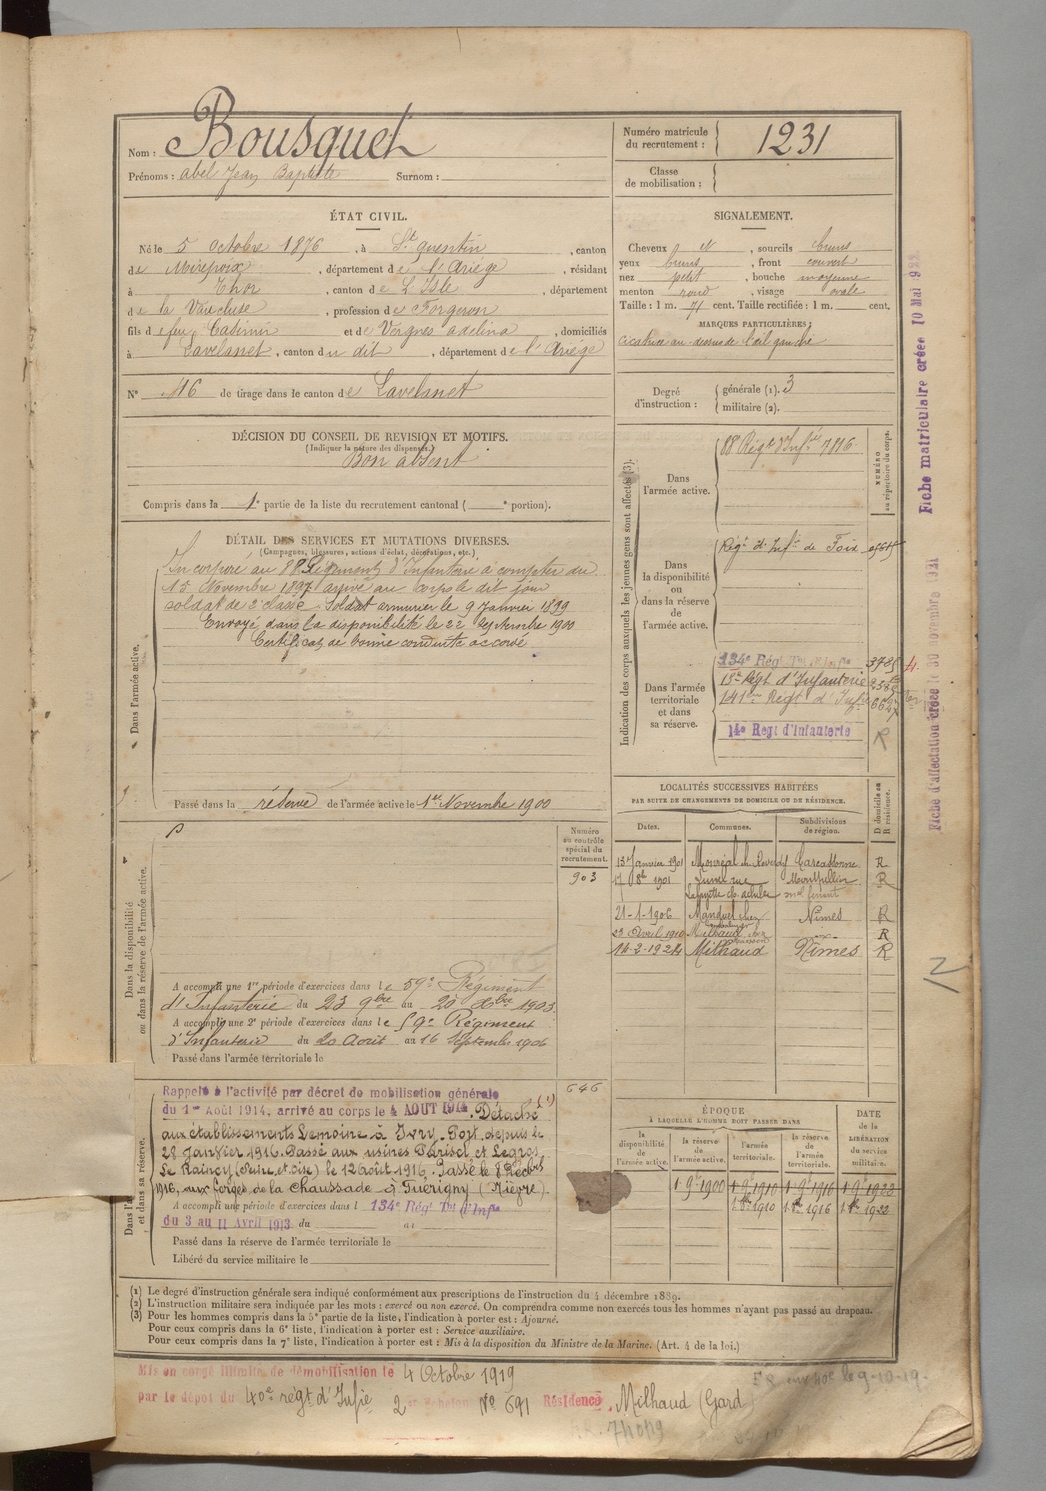 Nom : Bousquet
Prénoms : Abel Jean Baptiste Surnom :
Numéro matricule du recrutement : 1231
Classe de mobilisation :
ÉTAT CIVIL.
Né le 5 octobre 1876, à St quentin, canton
de Mirepoix, département de l'Ariège, résidant
à Thor, canton de L'Isle, département
de la Vaucluse, profession de Forgeron
fils de feu Casimir et de Vergnes adelina, domiciliés
à Lavelanet, canton du dit, département de l'Ariège
N° 46 de tirage dans le canton de Lavelanet
SIGNALEMENT.
Cheveux et, sourcils bruns
yeux bruns, front couvert
nez petit, bouche moyenne
menton rond, visage ovale
Taille : 1 m. 71 cent. Taille rectifiée : 1 m. cent.
MARQUES PARTICULIÈRES :
cicatrice au dessus de l'œil gauche
Degré d'instruction : générale (1). 3
militaire (2).
DÉCISION DU CONSEIL DE REVISION ET MOTIFS.
(Indiquer la nature des dispenses.)
Bon absent
Compris dans la 1e partie de la liste du recrutement cantonal ( e portion).
DÉTAIL DES SERVICES ET MUTATIONS DIVERSES.
(Campagnes, blessures, actions d'éclat, décorations, etc.)
Dans l'armée active.
Incorporé au 88 Régiment d'Infanterie à compter du
15 Novembre 1897 arrivé au corps le dit jour
soldat de 2e classe. Soldat armurier le 9 Janvier 1899
Envoyé dans la disponibilité le 22 Septembre 1900
Certificat de bonne conduite accordé
Passé dans la réserve de l'armée active le 1er Novembre 1900
Indication des corps auxquels les jeunes gens sont affectés (3).
NUMÉRO au répertoire du corps.
Dans l'armée active.
88 Régt d'Infrie 7816
Dans la disponibilité ou dans la réserve de l'armée active.
Régt d'Inf. de Foix
Dans l'armée territoriale et dans sa réserve.
134e Régt Tal d'Infie 3785
15e Régt d'Infanterie
141ème Régt d'Infie 6647
14e Régt d'Infanterie R
LOCALITÉS SUCCESSIVES HABITÉES
PAR SUITE DE CHANGEMENTS DE DOMICILE OU DE RÉSIDENCE.
Dates. Communes. Subdivisions de région. D domicile ou R résidence.
13 Janvier 1901 Carcassonne R
17 8bre 1901 Lunel rue Montpellier R
21-1-1906 Manduel chez Nîmes R
23 Avril 1910 Milhaud R
14-2-1924 Milhaud Nîmes R
Numéro au contrôle spécial du recrutement.
903
Dans la disponibilité ou dans la réserve de l'armée active.
A accompli une 1re période d'exercices dans le 59e Régiment
d'Infanterie du 23 9bre au 20 Xbre 1903
A accompli une 2e période d'exercices dans le 59e Régiment
d'Infanterie du 20 Août au 16 Septembre 1906
Passé dans l'armée territoriale le
646
Rappelé à l'activité par décret de mobilisation générale
du 1er Août 1914, arrivé au corps le 4 AOUT 1914. Détaché (1)
aux établissements Lemoine à Ivry-Port depuis le
28 Janvier 1916. Passé aux usines Parisot et Legros
Le Raincy (Seine et oise) le 12 août 1916. Passé le 8 Décbre
1916, aux forges de la Chaussade à Guérigny (Nièvre).
A accompli une période d'exercices dans l 134e Régt Tal d'Infie
du 3 au 11 Avril 1913 du au
Passé dans la réserve de l'armée territoriale le
Libéré du service militaire le
ÉPOQUE
À LAQUELLE L'HOMME DOIT PASSER DANS
la disponibilité de l'armée active. la réserve de l'armée active. l'armée territoriale. la réserve de l'armée territoriale.
DATE de la LIBÉRATION du service militaire.
1 9e 1900 1 9e 1910 1 9e 1916 1 9e 1922
1 8bre 1910 1 8bre 1916 1 8bre 1922
(1) Le degré d'instruction générale sera indiqué conformément aux prescriptions de l'instruction du 4 décembre 1889.
(2) L'instruction militaire sera indiquée par les mots : exercé ou non exercé. On comprendra comme non exercés tous les hommes n'ayant pas passé au drapeau.
(3) Pour les hommes compris dans la 5e partie de la liste, l'indication à porter est : Ajourné.
Pour ceux compris dans la 6e liste, l'indication à porter est : Service auxiliaire.
Pour ceux compris dans la 7e liste, l'indication à porter est : Mis à la disposition du Ministre de la Marine. (Art. 4 de la loi.)
Mis en congé illimité de démobilisation le 4 Octobre 1919
par le dépôt du 40e régt d'Infie 2e Echelon N° 691 Résidence Milhaud (Gard)
Fiche matriculaire créée 10 Mai 1922
Fiche d'affectation créée le 30 novembre 1921